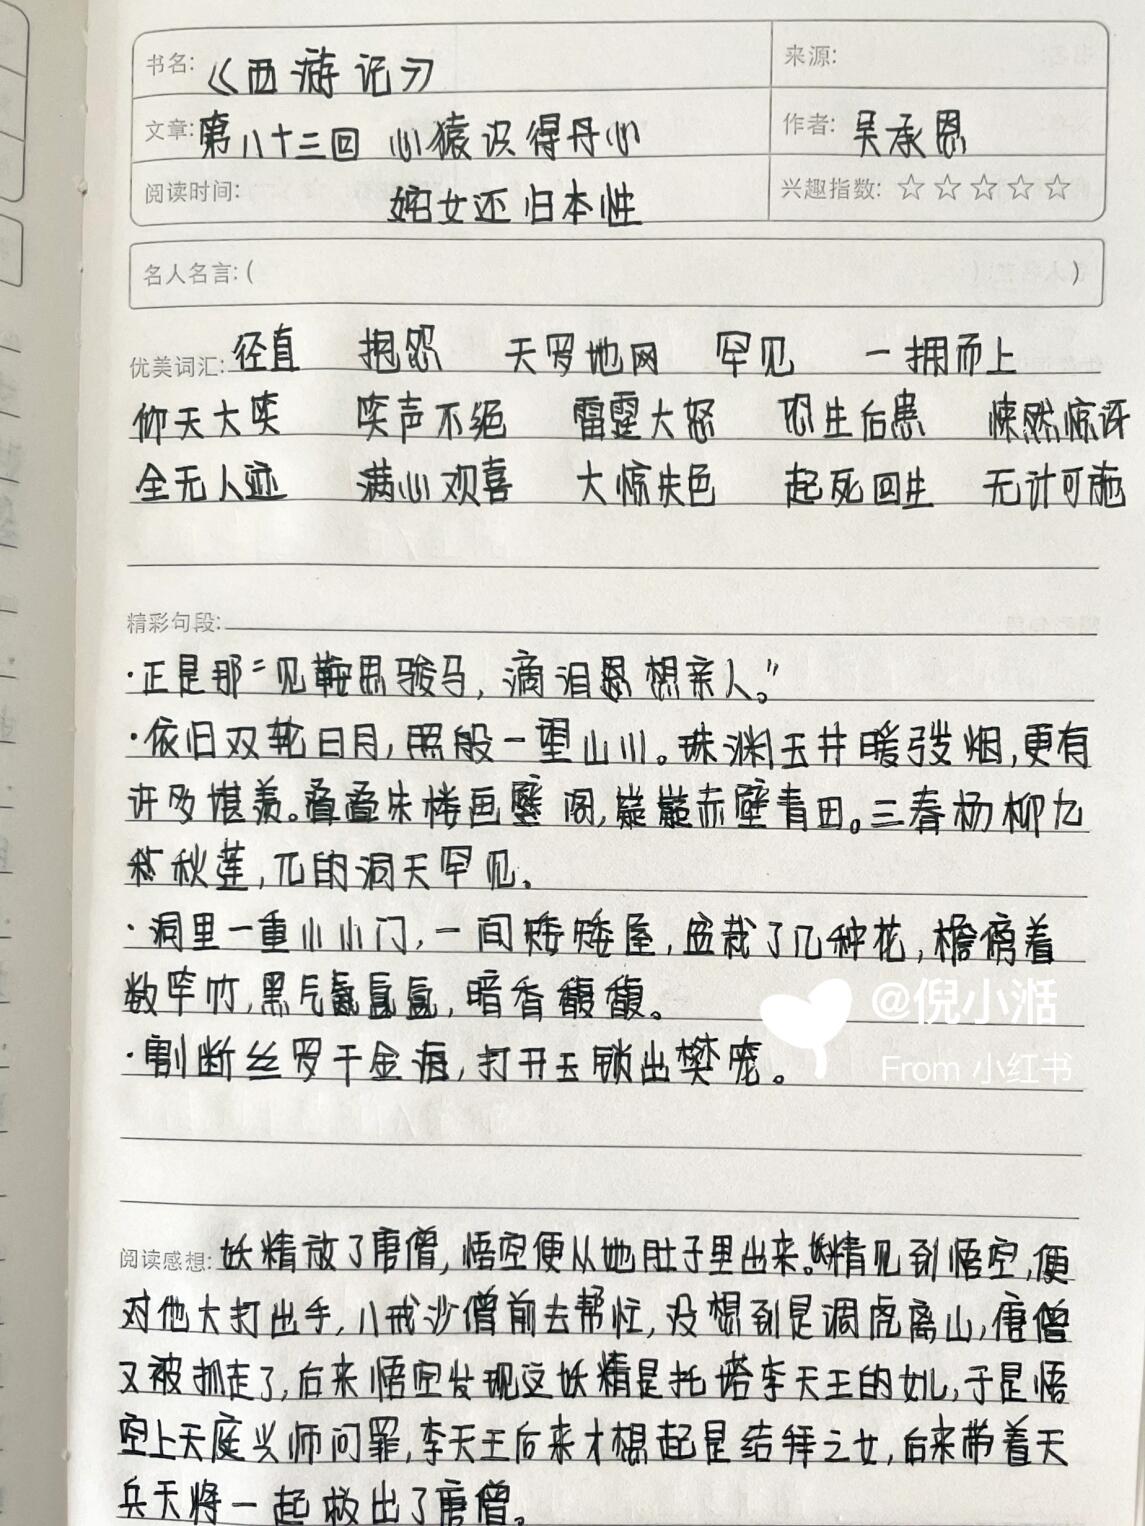 书名:《西游记》 来源:
文章:第八十三回 心猿识得丹心 作者:吴承恩
阅读时间: 姹女还归本性 兴趣指数:☆☆☆☆☆
名人名言:( )
优美词汇:径直 抱怨 天罗地网 罕见 一拥而上
仰天大笑 笑声不绝 雷霆大怒 恐生后患 悚然惊讶
全无人迹 满心观喜 大惊失色 起死回生 无计可施
精彩句段:
·正是那“见鞍思骏马,滴泪思想亲人。”
·依旧双轮日月,照般一望山川。珠渊玉井暖弢烟,更有
许多堪羡。叠叠朱楼画壁阁,嶷嶷赤壁青田。三春杨柳九
秋莲,兀的洞天罕见。
·洞里一重小小门,一间矮矮屋,盆栽了几种花,檐傍着
数竿竹,黑气氤氲氲,暗香馥馥。
·割断丝罗干金海,打开玉锁出樊笼。
@倪小湉
From 小红书
阅读感想:妖精放了唐僧,悟空便从她肚子里出来。妖精见到悟空,便
对他大打出手,八戒沙僧前去帮忙,没想到是调虎离山,唐僧
又被抓走了,后来悟空发现这妖精是托塔李天王的女儿,于是悟
空上天庭兴师问罪,李天王后来才想起是结拜之女,后来带着天
兵天将一起救出了唐僧。